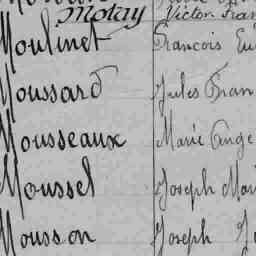 Motay Victor Fran
Moulinet François Eu
Moussard Jules Fran
Mousseaux Marie Ange
Moussel Joseph Mari
Mousson Joseph